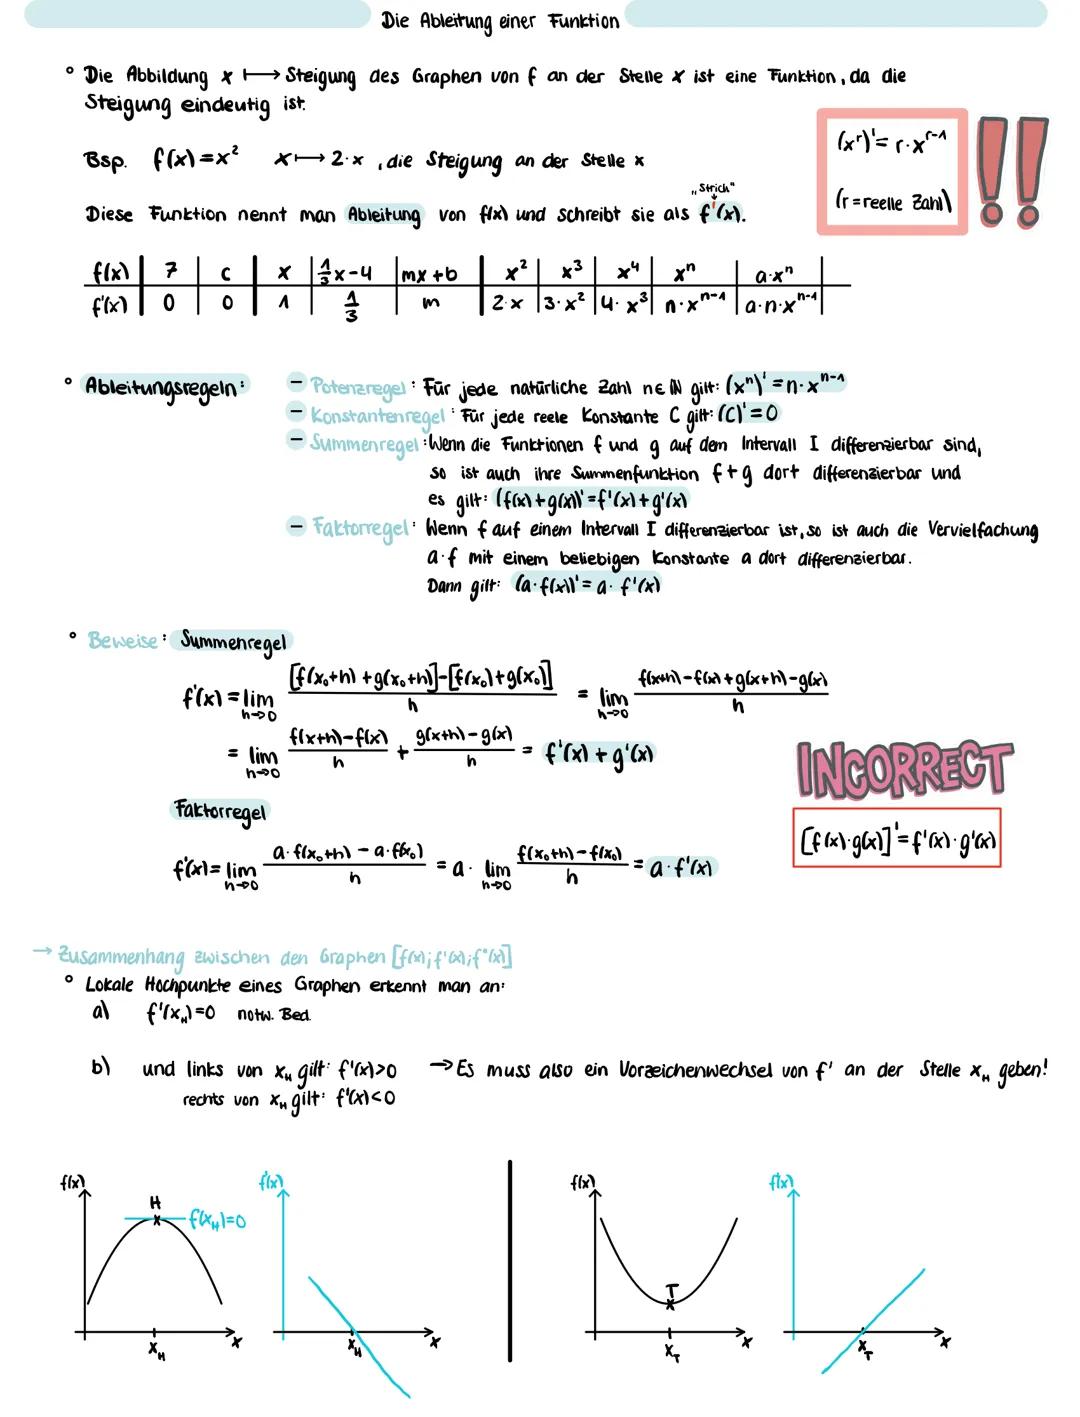 Die Ableitung einer Funktion
° Die Abbildung x ⟼ Steigung des Graphen von f an der Stelle x ist eine Funktion, da die
Steigung eindeutig ist.
Bsp. f(x)=x² x⟼2·x , die Steigung an der Stelle x
(xʳ)'= r·xʳ⁻¹
(r = reelle Zahl)
!!
„Strich"
Diese Funktion nennt man Ableitung von f(x) und schreibt sie als f'(x).
f(x) | 7 | c | x | 1/3x-4 | mx+b | x² | x³ | x⁴ | xⁿ | a·xⁿ |
f'(x) | 0 | 0 | 1 | 1/3 | m | 2·x | 3·x² | 4·x³ | n·xⁿ⁻¹ | a·n·xⁿ⁻¹ |
° Ableitungsregeln: – Potenzregel: Für jede natürliche Zahl n∈ℕ gilt: (xⁿ)'=n·xⁿ⁻¹
– Konstantenregel: Für jede reele Konstante C gilt: (C)'=0
– Summenregel: Wenn die Funktionen f und g auf dem Intervall I differenzierbar sind,
so ist auch ihre Summenfunktion f+g dort differenzierbar und
es gilt: (f(x)+g(x))'=f'(x)+g'(x)
– Faktorregel: Wenn f auf einem Intervall I differenzierbar ist, so ist auch die Vervielfachung
a·f mit einem beliebigen Konstante a dort differenzierbar.
Dann gilt: (a·f(x))'= a· f'(x)
° Beweise: Summenregel
f'(x) = lim h→0 [f(x₀+h)+g(x₀+h)]-[f(x₀)+g(x₀)] / h = lim h→0 f(x+h)-f(x)+g(x+h)-g(x) / h
= lim h→0 f(x+h)-f(x) / h + g(x+h)-g(x) / h = f'(x)+g'(x)
INCORRECT
[f(x)·g(x)]'=f'(x)·g'(x)
Faktorregel
f'(x)= lim h→0 a·f(x₀+h) - a·f(x₀) / h = a· lim h→0 f(x₀+h)-f(x₀) / h = a·f'(x)
→ Zusammenhang zwischen den Graphen [f(x);f'(x);f"(x)]
° Lokale Hochpunkte eines Graphen erkennt man an:
a) f'(x_H)=0 notw. Bed.
b) und links von x_H gilt: f'(x)>0 → Es muss also ein Vorzeichenwechsel von f' an der Stelle x_H geben!
rechts von x_H gilt: f'(x)<0
f(x) f'(x) f(x) f'(x)
H
f'(x_H)=0
T
x_H x x_H x x_T x x_T x